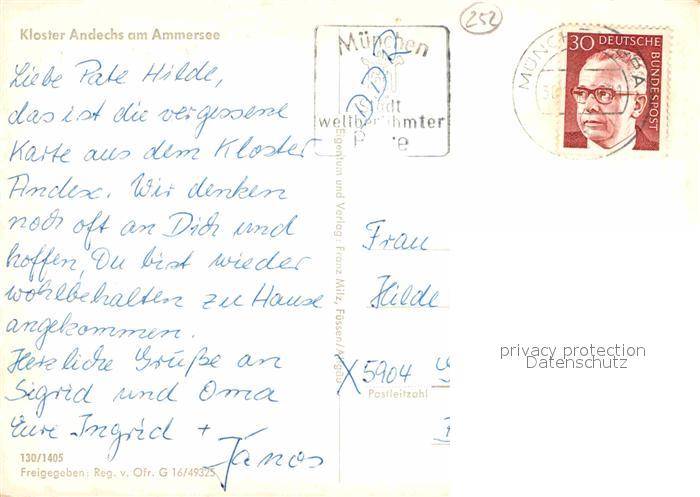 Kloster Andechs am Ammersee
Liebe Pate Hilde,
das ist die vergessene
Karte aus dem Kloster
Andex. Wir denken
noch oft an Dich und
hoffen, Du bist wieder
wohlbehalten zu Hause
angekommen.
Herzliche Grüße an
Sigrid und Oma
Eure Ingrid +
Janos
130/1405
Freigegeben: Reg. v. Ofr. G 16/49325
Eigentum und Verlag: Franz Milz, Füssen/Allgäu
252
München
DDR
weltberühmter
MÜNCHEN
30 DEUTSCHE
BUNDESPOST
Frau
Hilde
X 5904
Postleitzahl
privacy protection
Datenschutz